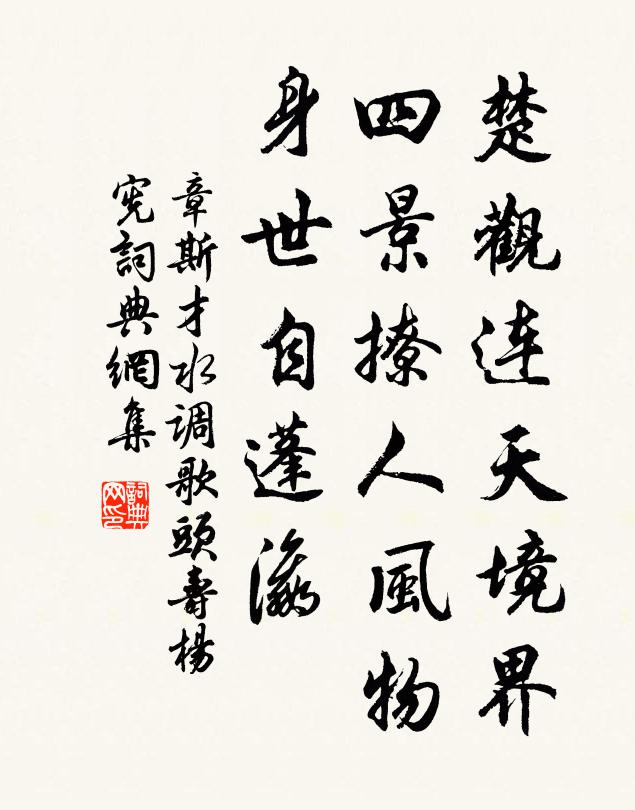 楚觀连天境界
四景撩人風物
身世自蓬瀛
章斯才水调歌頭壽楊
宪詞典網集
詞典网印